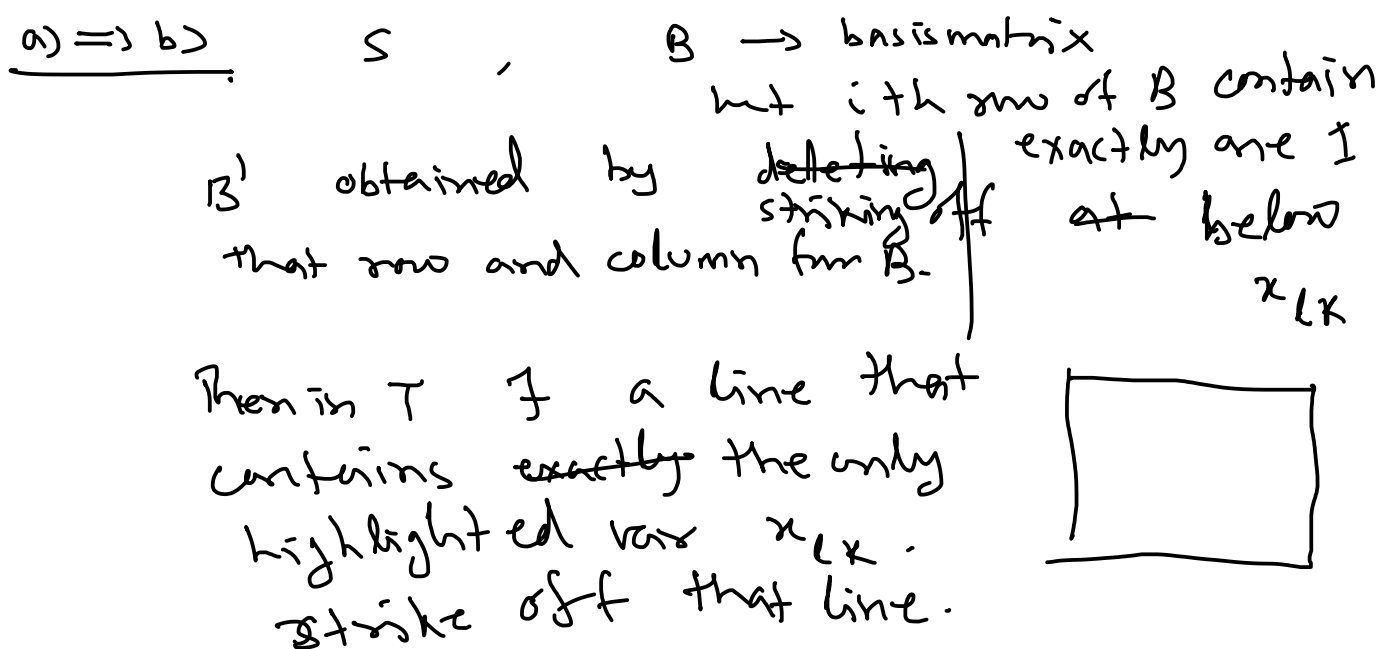 a) ⇒ b) S , B → basis matrix
but ith row of B contain
exactly one 1
B' obtained by ~~deleting~~
striking off ~~at~~ below
that row and column from B.
x_{lk}
Then in T ∃ a line that
contains ~~exactly~~ the only
highlighted var x_{lk}.
strike off that line.